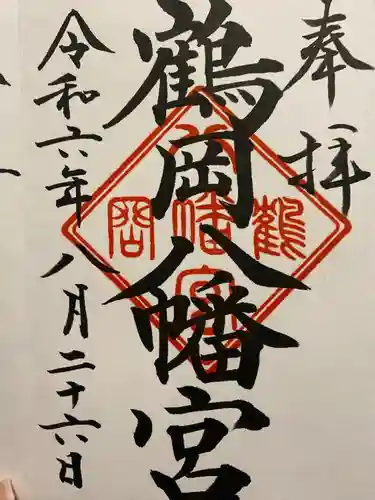 奉拝
鶴岡八幡宮
令和六年八月二十六日
鶴岡八幡宮